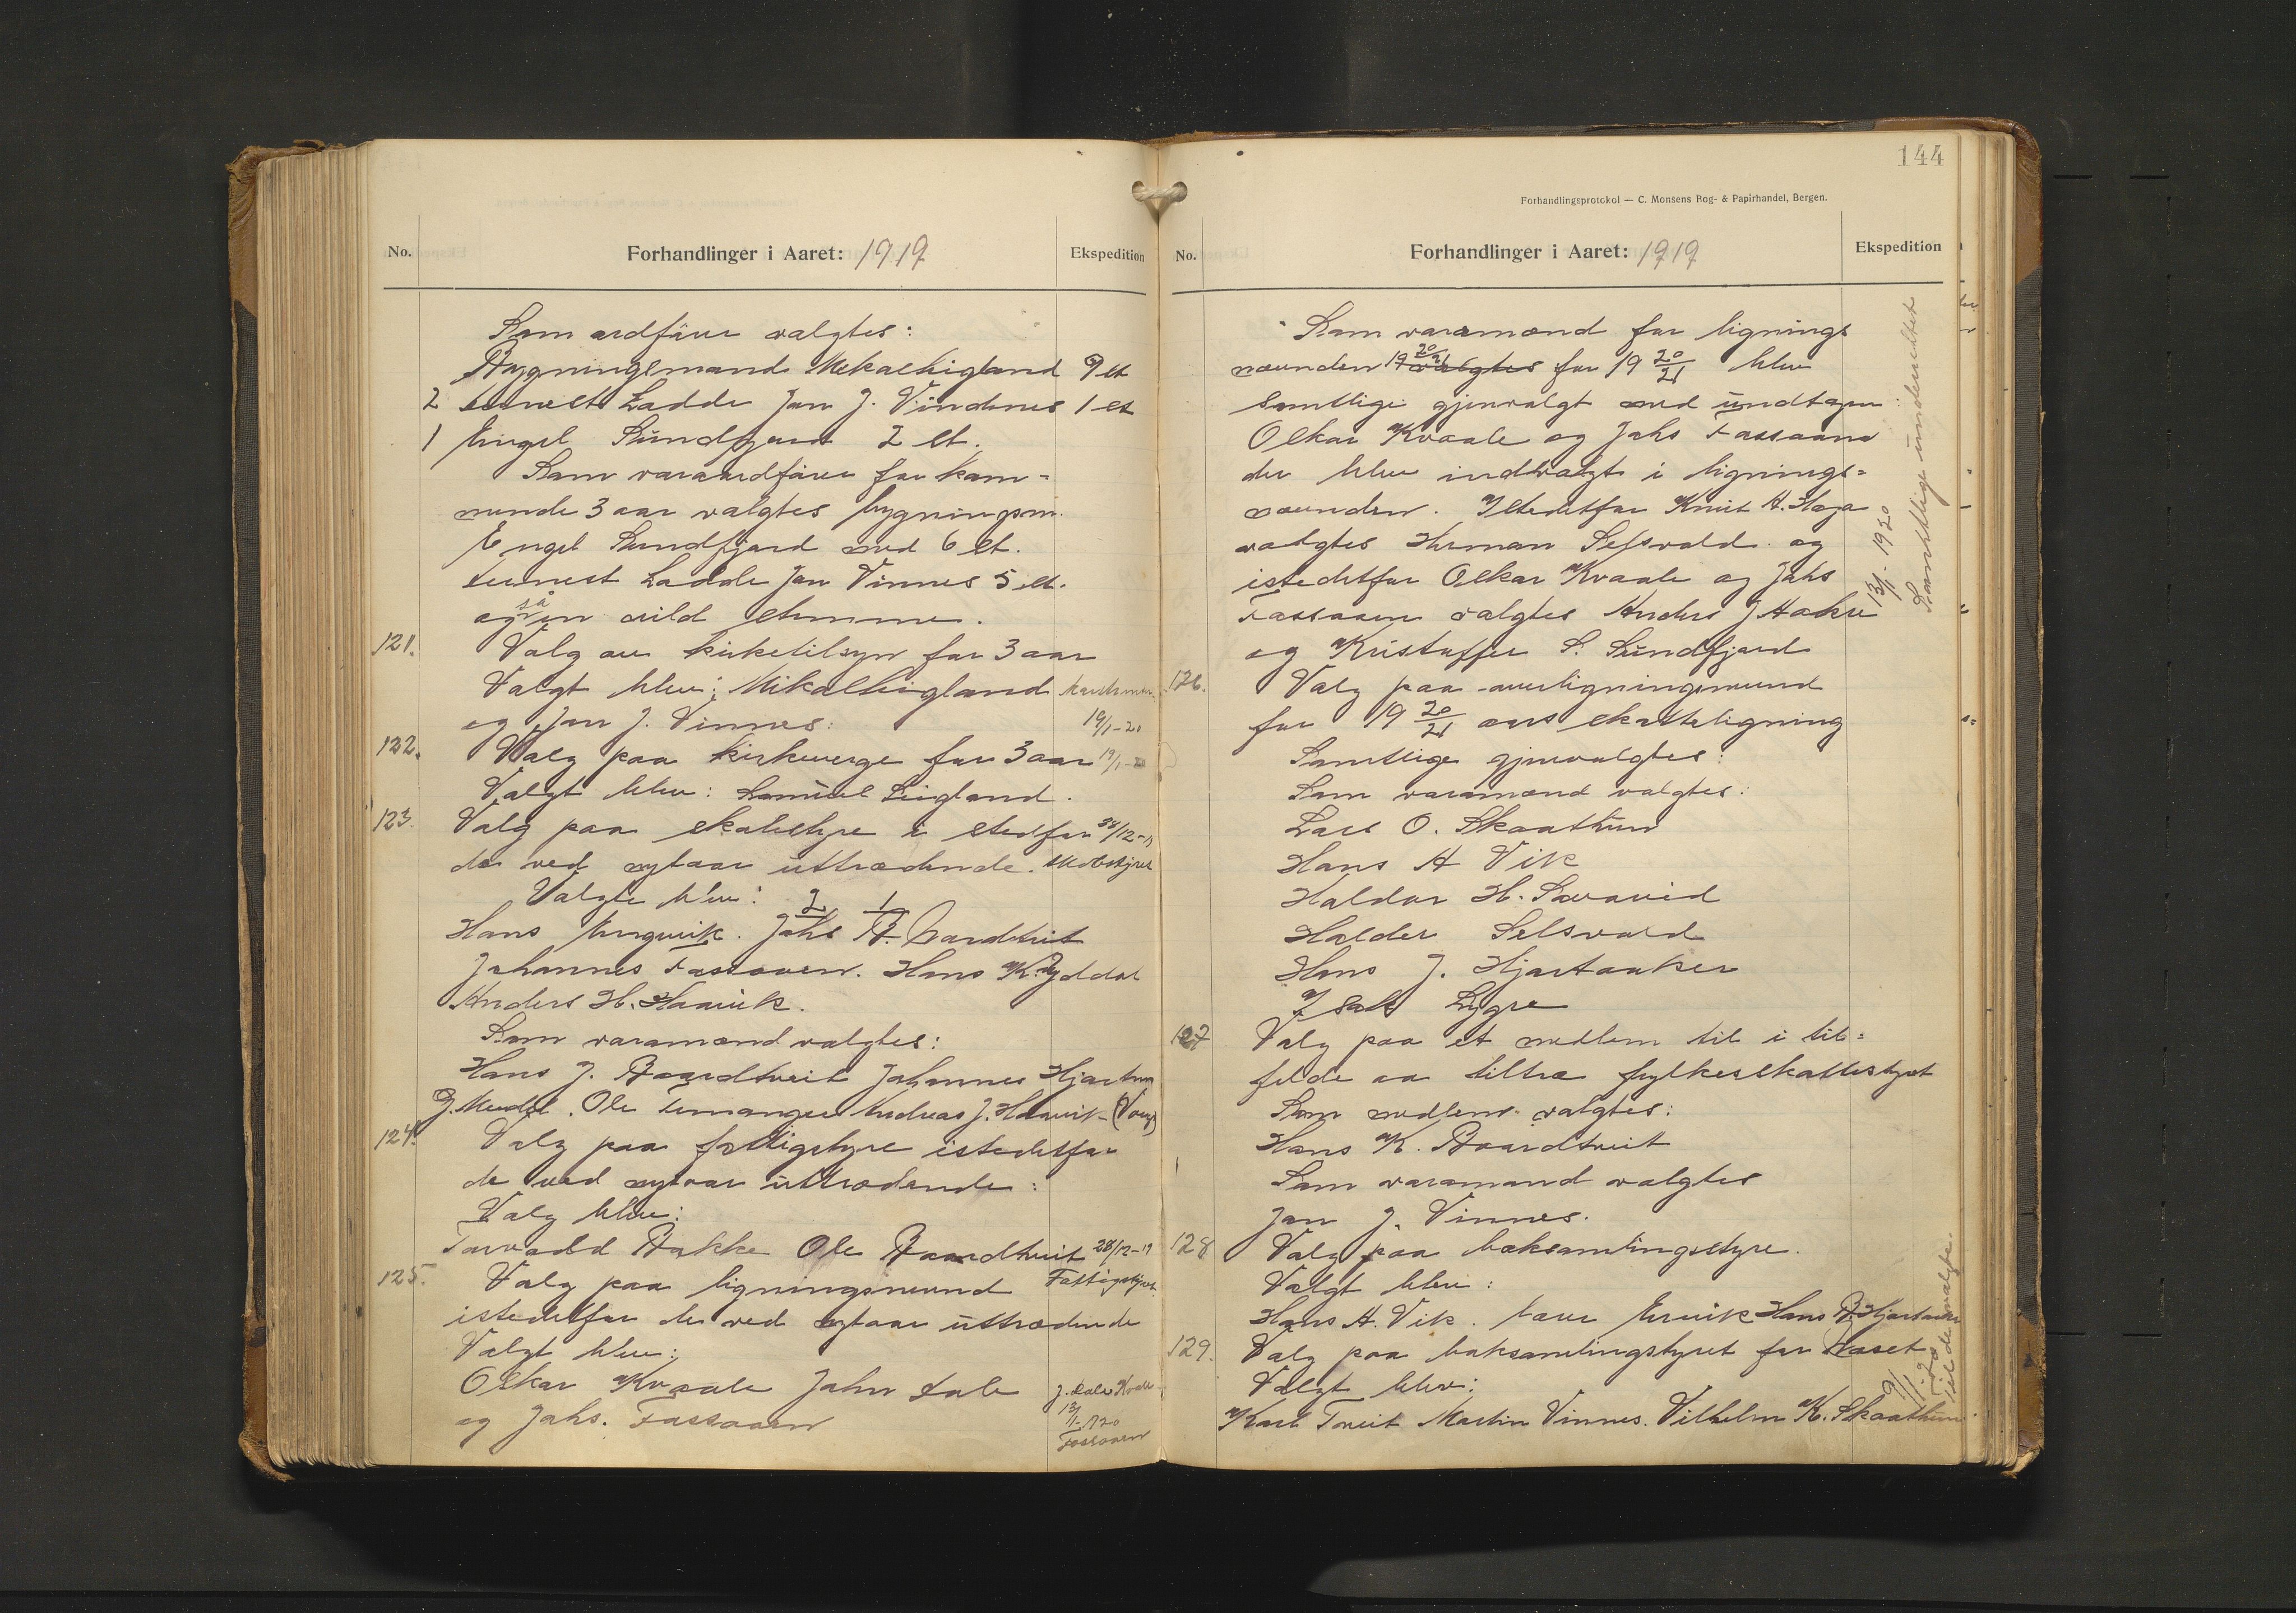 No.
Forhandlinger i Aaret: 1919
Ekspedition
Som ordfører valgtes:
Bygningsmand Mikal Leigland 9 st
2 dernest Ladde Jon J. Vindnes 1 st
1 Engel Sundfjord 2 st.
Som varaordfører for kom-
mende 3 aar valgtes bygningsm.
Engel Sundfjord med 6 st.
dernest Ladde Jon Vinnes 5 st.
også en vild stemme.
121. Valg av kirketilsyn for 3 aar
Valgt blev: Mikal Leigland
og Jon J. Vinnes:
19/1-20
122. Valg paa kirkeverge for 3 aar 19/1-20
Valgt blev: Samuel Leigland.
123. Valg paa skolestyre i stedfor
de ved nytaar uttrædende. Skolestyret
Valgte blev: 2 1
Hans Engevik. Johs B. Baardtveit
Johannes Fossaaen. Hans K. Yddal
Anders H. Haavik.
Som varamænd valgtes:
Hans J. Baardtveit Johannes Hjartnes
G. Mendel. Ole Femanger Andreas J. Haavik (Vaag)
124. Valg paa fattigstyre istedetfor
de ved nytaar uttrædende:
Valg blev:
Torvald Bakke Ole Baardtveit 28/12-19
Fattigstyret
125. Valg paa ligningsnevnd
istedetfor de ved nytaar uttrædende
Valgt blev:
Oskar Kvaale John Dale
og Johs. Fossaaen
J. Dale Kvale
13/1-1920
Fossaaen
144
Forhandlingsprotokol — C. Monsens Bog- & Papirhandel, Bergen.
No.
Forhandlinger i Aaret: 1919
Ekspedition
Som varamænd for lignings
nævnden 19 20/21 valgtes for 19 20/21 blev
samtlige gjenvalgt med undtagen
Oskar Kvaale og Johs Fossaaen
der blev indvalgt i lignings-
nævnden. Istedetfor Knut A. Haga
valgtes Herman Selsvold og
istedetfor Oskar Kvaale og Johs
Fossaaen valgtes Anders J Aakre
og Kristoffer S. Sundfjord
13/1-1920
Samtlige underrettet
126. Valg paa overligningsnevnd
for 19 20/21 aars skatteligning
Samtlige gjenvalgtes:
Som varamænd valgtes:
Lars O. Skaathun
Hans A Vik
Haldor H. Sævareid
Halder Selsvold
Hans J. Hjartaaker
Isak Lygre
127 Valg paa et medlem til i til-
felde aa tiltræ fylkesskattestyret
Som medlem valgtes:
Hans K. Baardtveit
Som varamand valgtes
Jon J. Vinnes.
128 Valg paa boksamlingsstyre.
Valgt blev:
Hans A. Vik. Ervik Hans B. Hjartaaker
129. Valg paa boksamlingstyret for Næset
Valgt blev:
Karl Tveit Martin Vinnes. Vilhelm K. Skaathun.
9/1-20
Til de valgte.